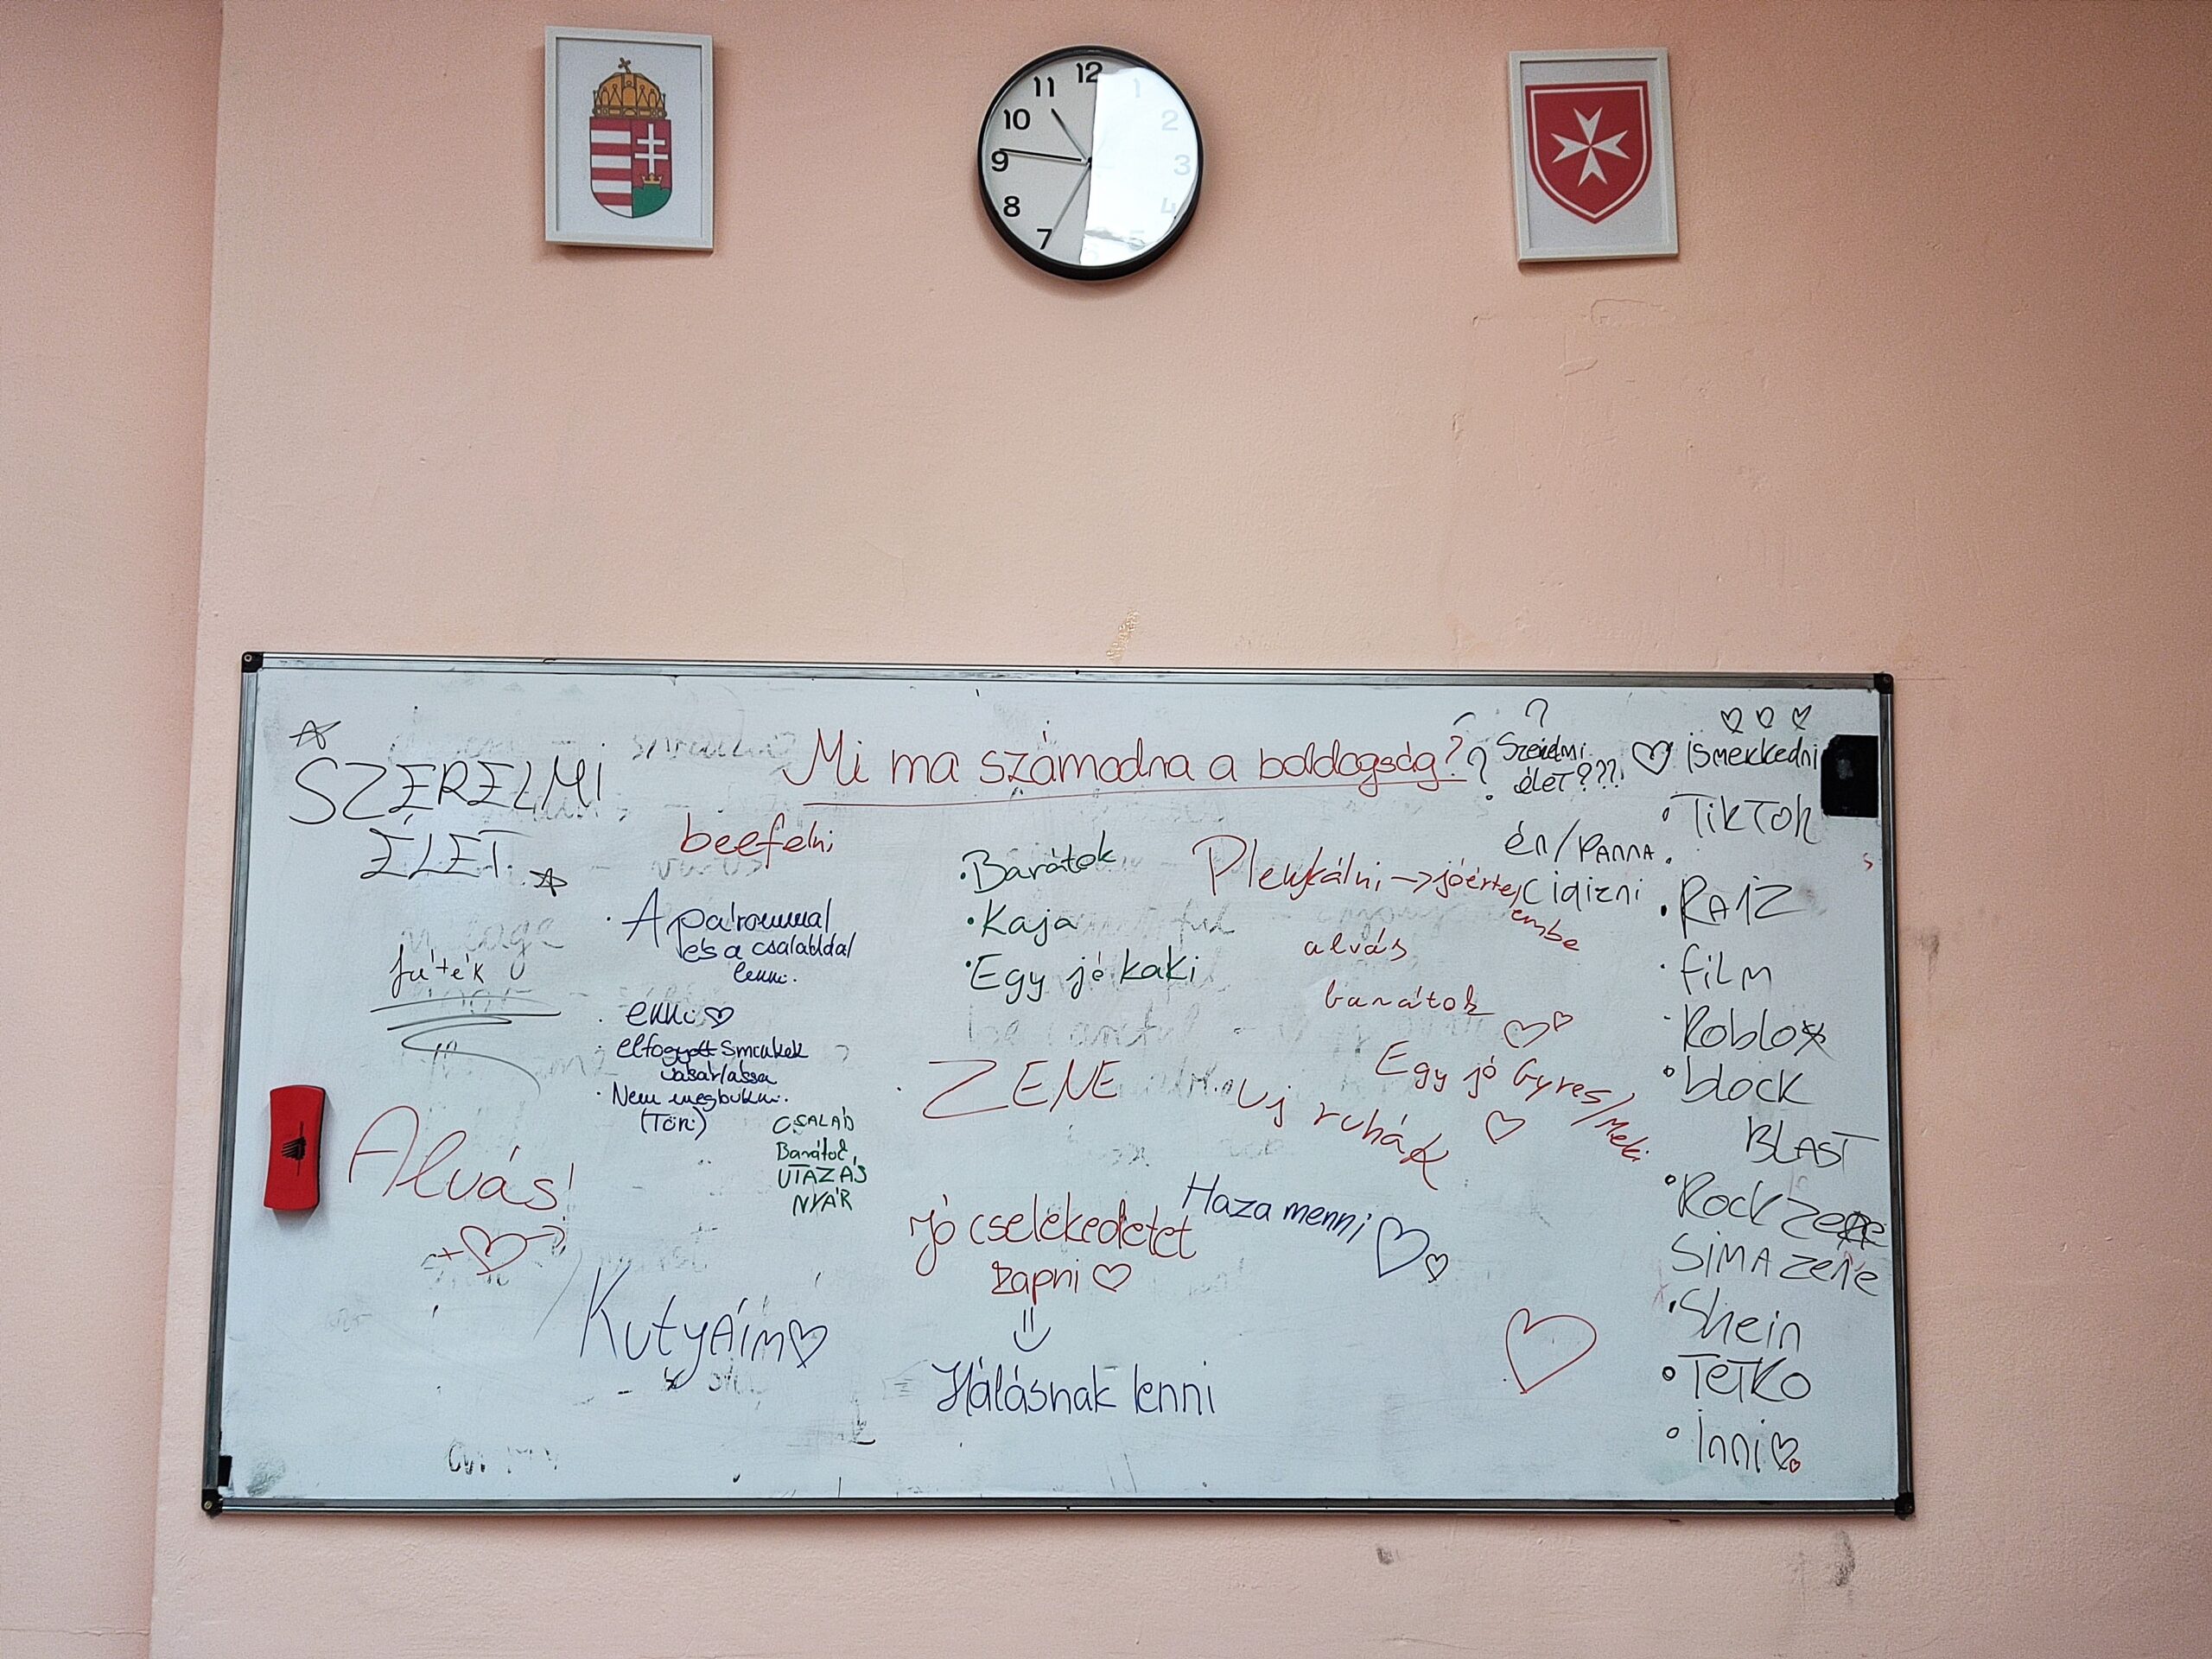 12
11
10
9
8
7
1
2
3
4
5
Mi ma számodna a boldogság?
SZERELMI
ÉLET
beefelni
A párommal
és a családdal
lenni.
fúték
enni
elfogyott smcukek
vásárlássa
Nem megbukni.
(Töri)
CSALÁD
Barátok
UTAZÁS
NYÁR
Alvás!
Kutyáim
Barátok
Kaja
Egy jó kaki
ZENE
jó cselekedetet
kapni
Hálásnak lenni
Haza menni
Szerelmi
élet???
én/PANNA
Plenykálni → jóértelembe
Cigizni
alvás
barátok
Egy jó Gyros/Meki
Uj ruhák
ismerkedni
TikTok
RAJZ
film
Roblox
block
BLAST
Rock zene
SIMA zene
Shein
TETKO
Inni